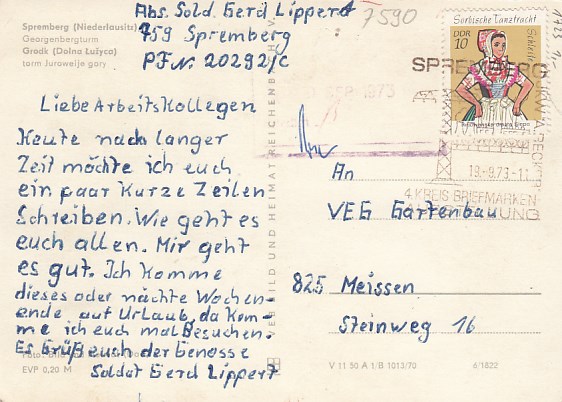 Abs. Sold. Gerd Lippert
7590
759 Spremberg
PFNr. 20292/C
Spremberg (Niederlausitz)
Georgenbergturm
Grodk (Dolna Łužyca)
torm Jurowejc gory
Liebe Arbeitskollegen
Heute nach langer
Zeit möchte ich euch
ein paar Kurze Zeilen
Schreiben. Wie geht es
euch allen. Mir geht
es gut. Ich Komme
dieses oder nächte Wochen-
ende auf Urlaub, da Kom-
me ich euch mal Besuchen.
Es Grüß euch der Genosse
Soldat Gerd Lippert
EVP 0,20 M
VEB BILD UND HEIMAT REICHENBACH I. V.
Sorbische Tanztracht
DDR
10
SPREMBERG
19.-9.73-11
4. KREIS BRIEFMARKEN
AUSSTELLUNG
An
VEG Gartenbau
825 Meissen
Steinweg 16
V 11 50 A 1/B 1013/70
6/1822